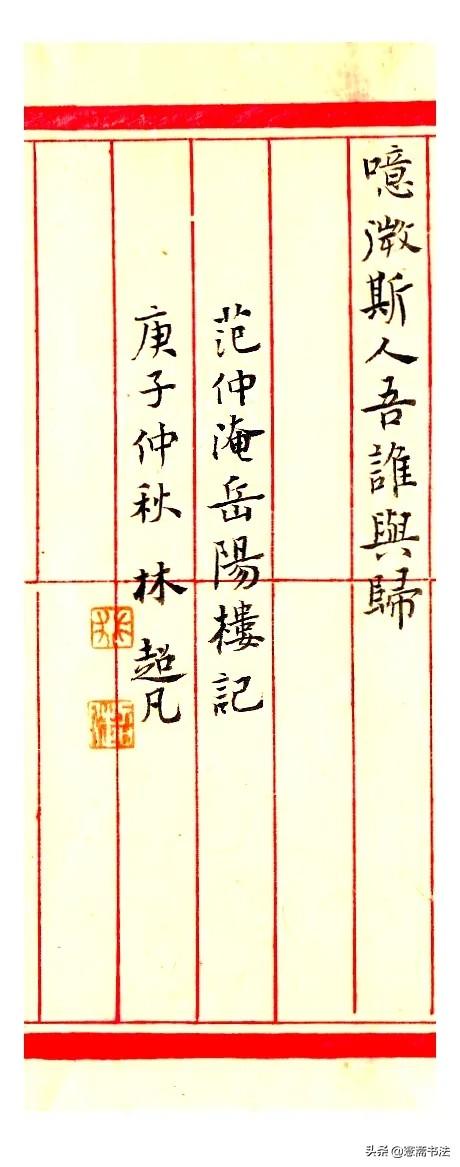 噫微斯人吾誰與歸
范仲淹岳陽樓記
庚子仲秋 林超凡
头条 @憲齋书法